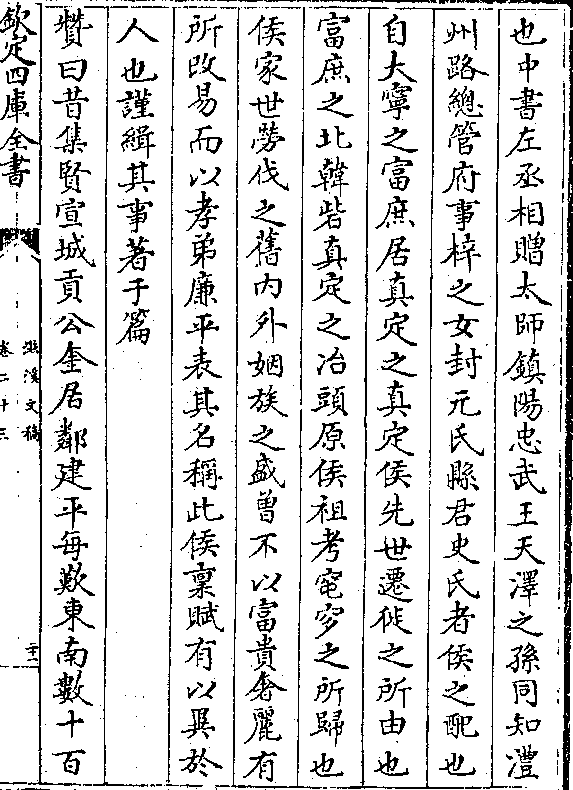 也中書左丞相贈太師鎮陽忠武王天澤之孫同知澧
州路總管府事梓之女封元氏縣君史氏者侯之配也
自大寧之富庶居真定之真定侯先世遷徙之所由也
富庶之北韓砦真定之冶頭原侯祖考窀穸之所歸也
侯家世勞伐之舊内外姻族之盛曽不以富貴奢麗有
所改易而以孝弟廉平表其名稱此侯稟賦有以異於
人也謹緝其事著于篇
賛曰昔集賢宣城貢公奎居鄰建平每歎東南數十百
欽定四庫全書
滋溪文稿
卷二十三